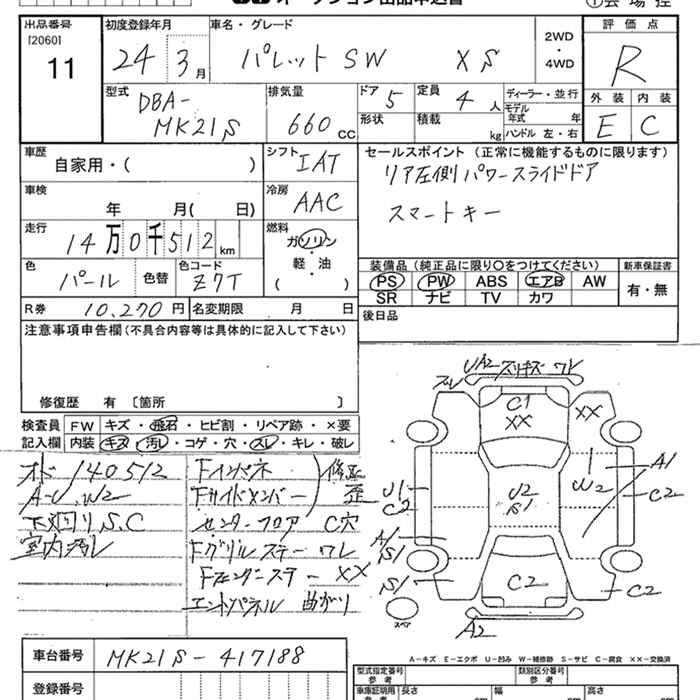 出品番号 初度登録年月 車名・グレード 2WD・4WD 評価点
[2060]
11 24年 3月 パレットSW XS R
型式 DBA-MK21S 排気量 660CC ドア 5 定員 4人 ディーラー・並行 外装 内装
形状 積載 kg モデル年式 年 ハンドル 左・右 E C
車歴 自家用・( ) シフト IAT セールスポイント (正常に機能するものに限ります)
リア左側パワースライドドア
車検 年 月( 日) 冷房 AAC スマートキー
走行 14万0千512km 燃料 ガソリン・軽・油 ( )
色 パール 色替 色コード Z7T 装備品 (純正品に限り〇をつけてください) 新車保証書
PS PW ABS エアB AW 有・無
SR ナビ TV カワ
R券 10,270円 名変期限 月 日 後日品
注意事項申告欄(不具合内容等は具体的に記入して下さい)
修復歴 有 〔箇所 〕
検査員記入欄 FW キズ・飛石・ヒビ割・リペア跡・×要
内装 キズ・汚レ・コゲ・穴・スレ・キレ・破レ
オド 140512 Fインパネ 修正
A-U.W2 Fサイドメンバー 歪
下廻りS.C センターフロア C穴
室内汚レ Fグリルステー ワレ
Fフェンダーステー XX
エンドパネル 曲がり
UA2 スリキズ ワレ
C1
XX XX
U1 C2 U2 S1 W2 A1 C2
A1 S1
S1 C2 C2
スペア A2
A-キズ E-エクボ U-凹み W-補修跡 S-サビ C-腐食 ××-交換済
車台番号 MK21S-417188 型式指定番号 参考 類別区分番号 参考
登録番号 車庫証明用 参考 長さ cm 幅 cm 高さ cm